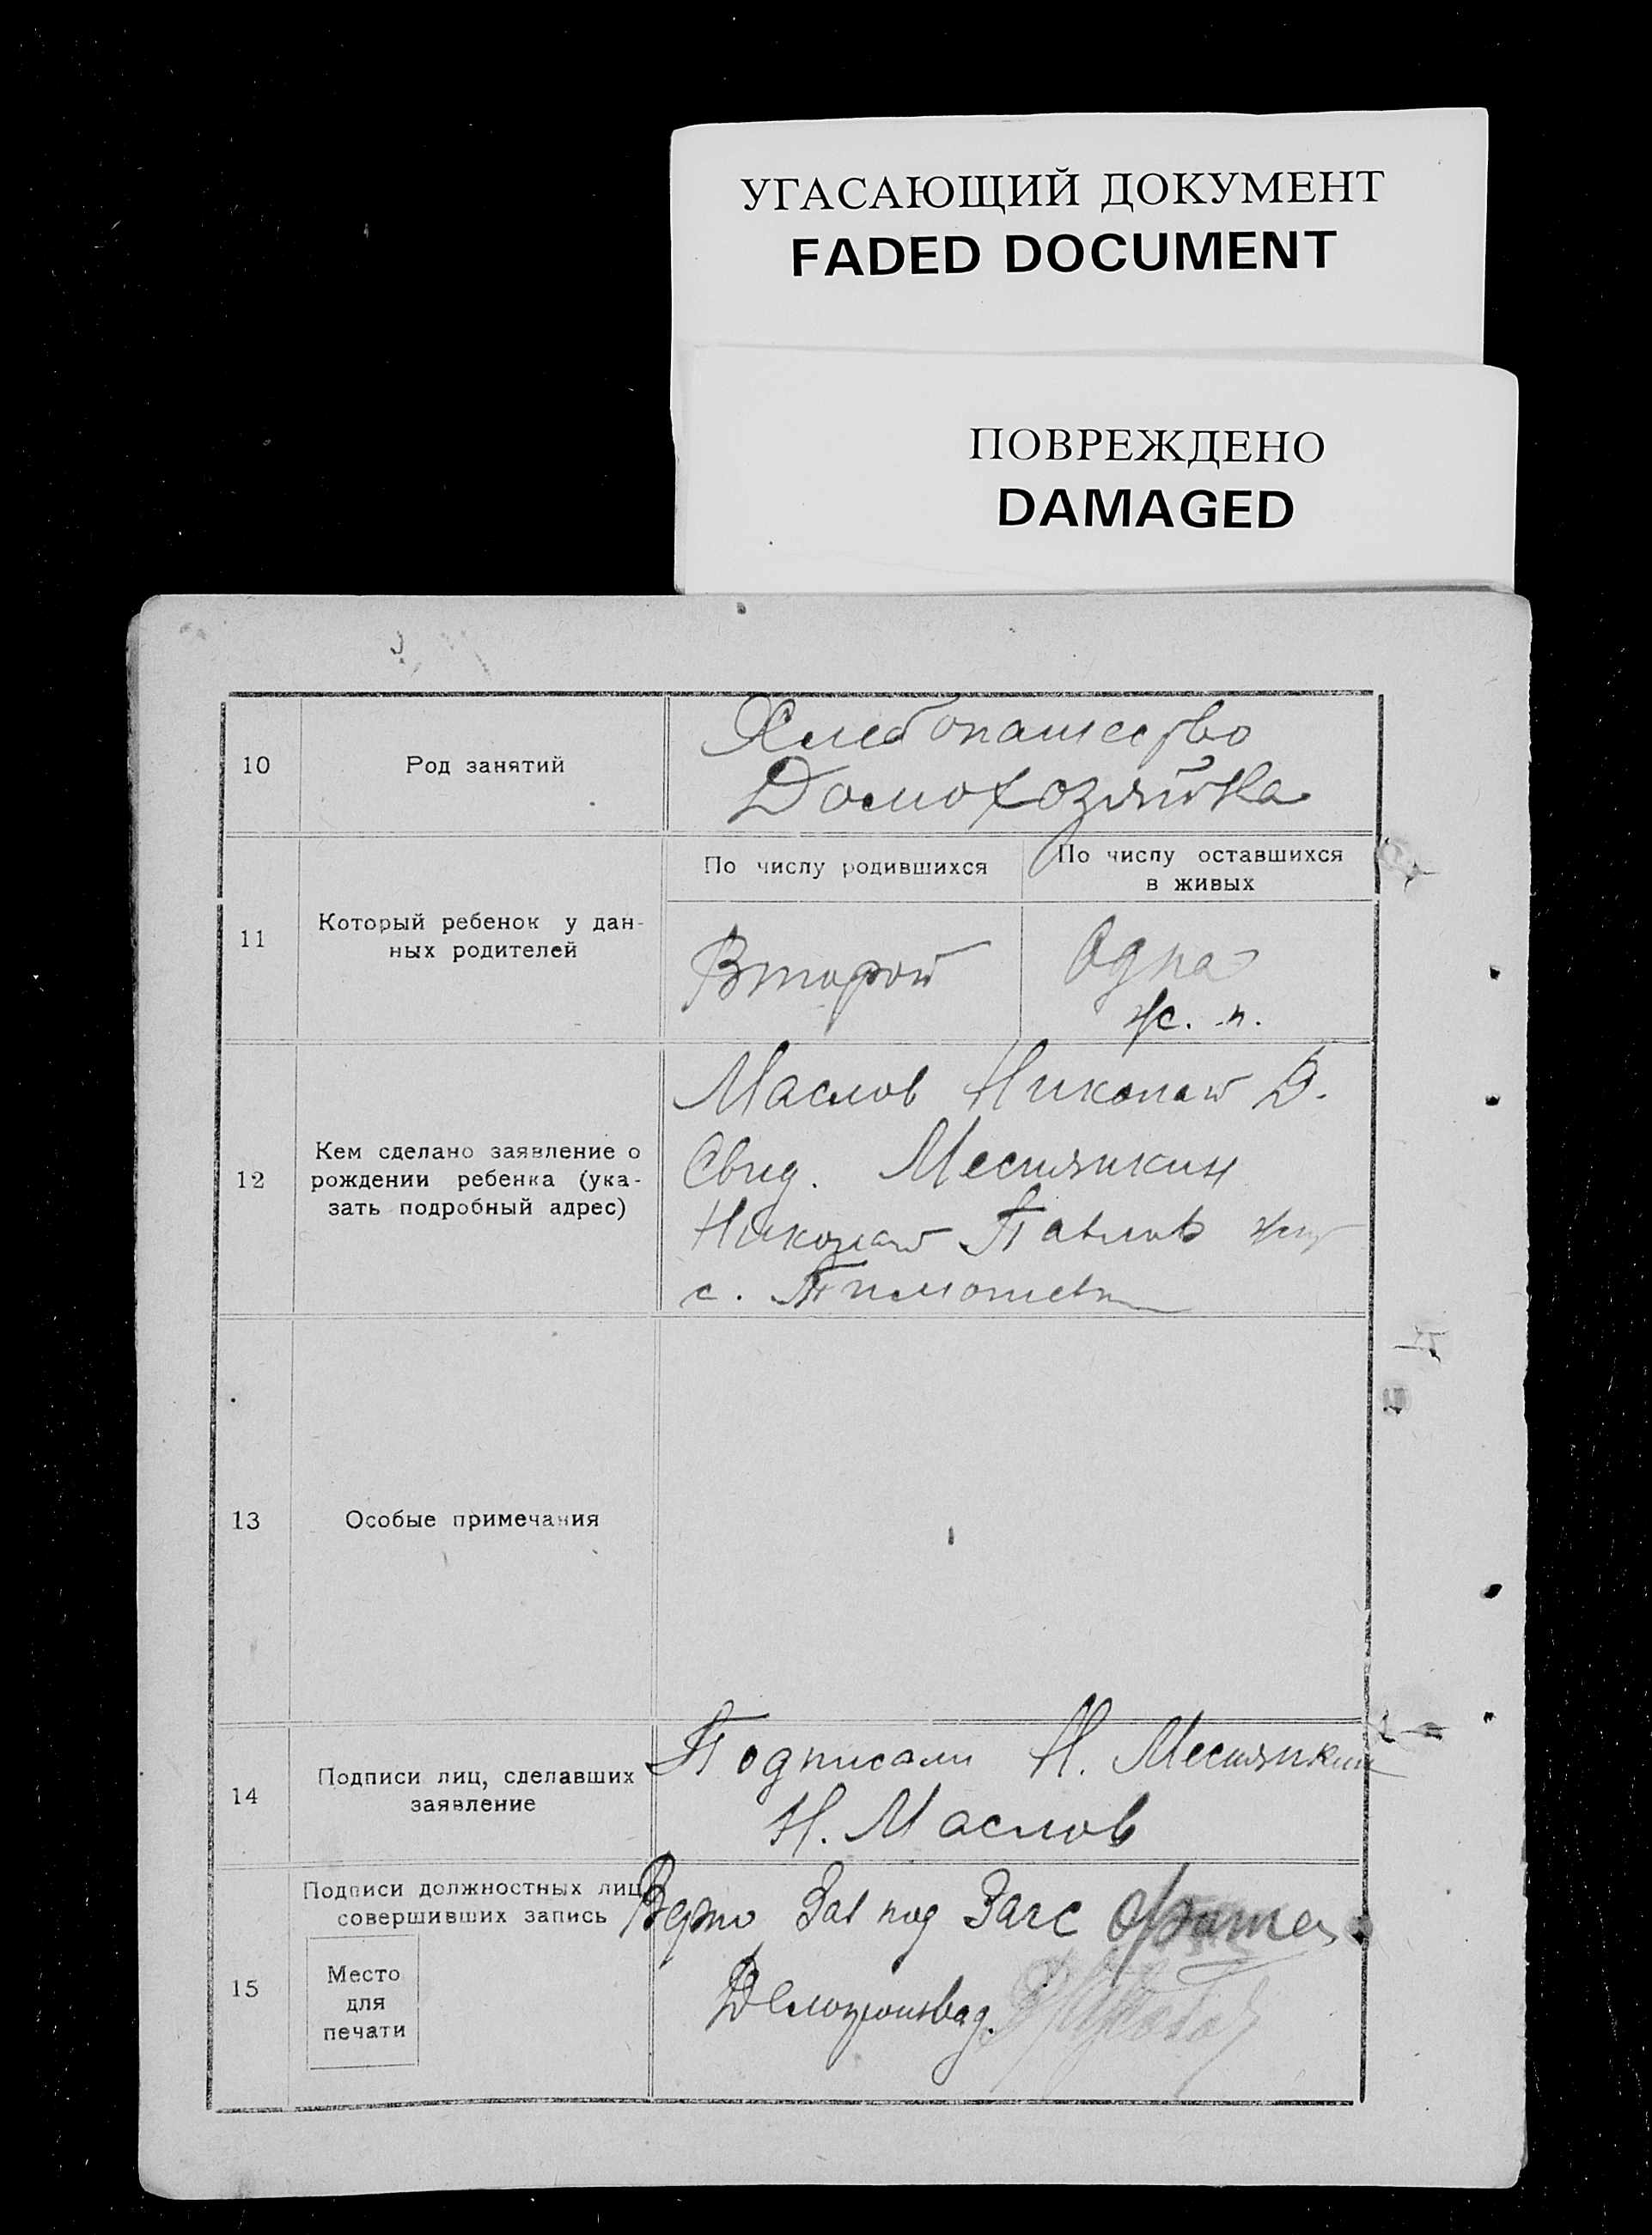 УГАСАЮЩИЙ ДОКУМЕНТ
FADED DOCUMENT
ПОВРЕЖДЕНО
DAMAGED
10
Род занятий
Хлебопашество
Домохозяйка
11
Который ребенок у дан-
ных родителей
По числу родившихся
По числу оставшихся
в живых
Второй
Одна
ж. п.
12
Кем сделано заявление о
рождении ребенка (ука-
зать подробный адрес)
Маслов Николай Д.
Свид. Месилкин
Николай Павлов
с.
13
Особые примечания
14
Подписи лиц, сделавших
заявление
Подписали Н. Месилкин
Н. Маслов
15
Подписи должностных лиц,
совершивших запись
Место
для
печати
Верно Зав под Загс
Делопроизвод.